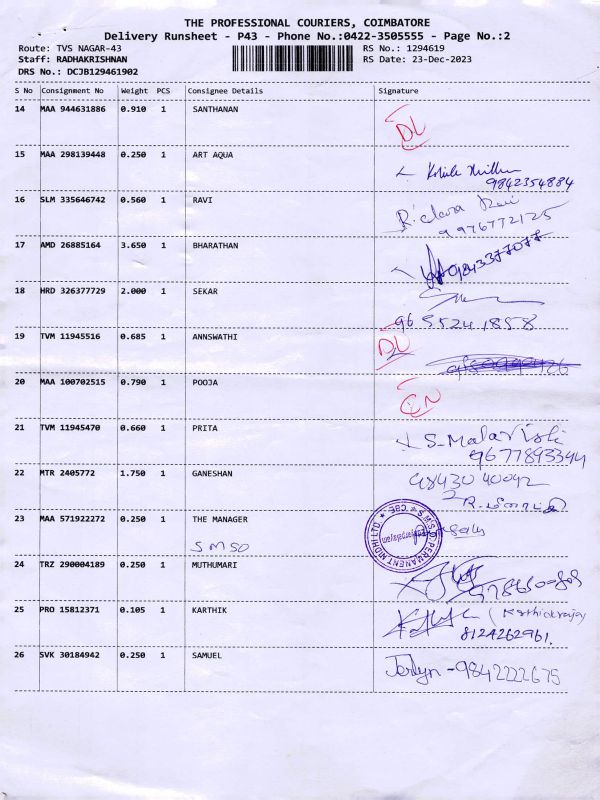 THE PROFESSIONAL COURIERS, COIMBATORE
Delivery Runsheet - P43 - Phone No.:0422-3505555 - Page No.:2
Route: TVS NAGAR-43 RS No.: 1294619
Staff: RADHAKRISHNAN RS Date: 23-Dec-2023
DRS No.: DCJB129461902
S No Consignment No Weight PCS Consignee Details Signature
14 MAA 944631886 0.910 1 SANTHANAN
DL
15 MAA 298139448 0.250 1 ART AQUA
9842354884
16 SLM 335646742 0.560 1 RAVI
9976772125
17 AMD 26885164 3.650 1 BHARATHAN
18 HRD 326377729 2.000 1 SEKAR
9655241858
19 TVM 11945516 0.685 1 ANNSWATHI
DL
20 MAA 100702515 0.790 1 POOJA
CN
21 TVM 11945470 0.660 1 PRITA
S. Malar
9677893344
22 MTR 2405772 1.750 1 GANESHAN
98430 40042
R.
23 MAA 571922272 0.250 1 THE MANAGER
SMSO
S.M.S.O. PERMANENT NIDHI LTD. CBE
24 TRZ 290004189 0.250 1 MUTHUMARI
25 PRO 15812371 0.105 1 KARTHIK
8124262961.
26 SVK 30184942 0.250 1 SAMUEL
Jerlyn - 9842222675